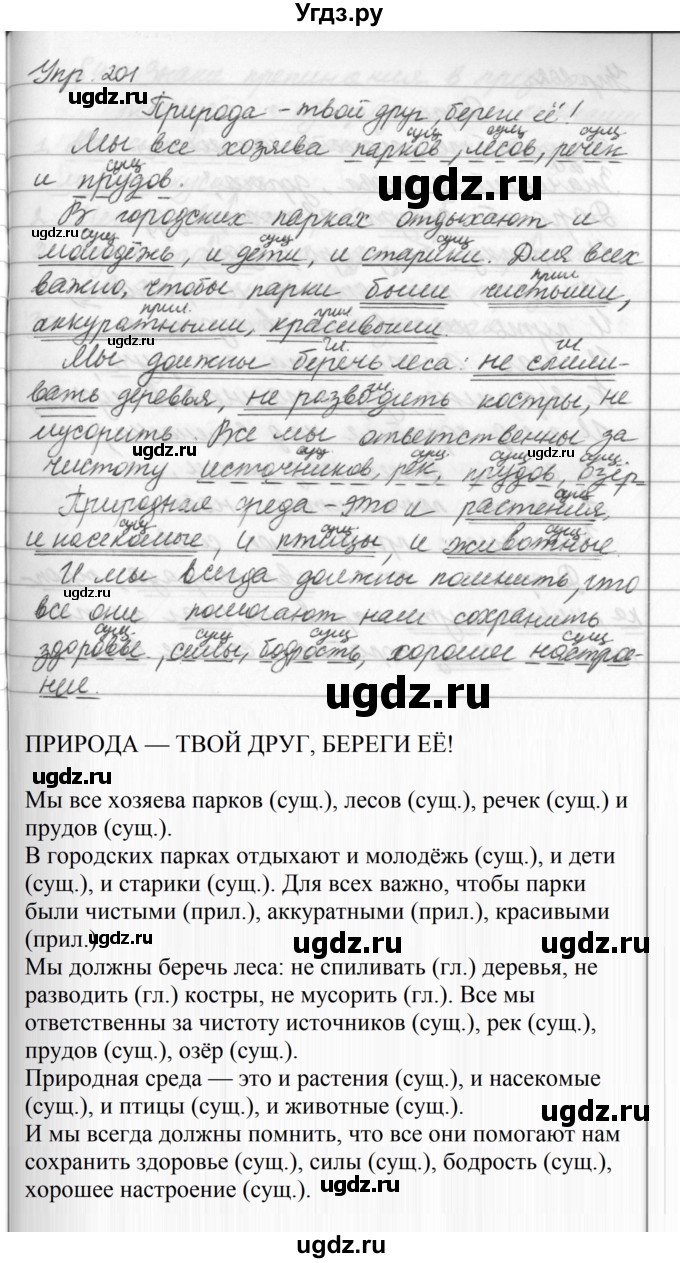 Угдз.ру
Упр. 201
Природа – твой друг, береги её!
сущ. сущ. сущ.
Мы все хозяева парков, лесов, речек
сущ
и прудов.
В городских парках отдыхают и
сущ. сущ. сущ.
молодёжь, и дети, и старики. Для всех
прил
важно, чтобы парки были чистыми,
прил. прил
аккуратными, красивыми
гл. гл
Мы должны беречь леса: не спили-
гл
вать деревья, не разводить костры, не
мусорить. Все мы ответственны за
сущ сущ. сущ. сущ.
чистоту источников, рек, прудов, озёр
сущ
Природная среда – это и растения,
сущ сущ. сущ.
и насекомые, и птицы, и животные.
И мы всегда должны помнить, что
все они помогают нам сохранить
сущ. сущ сущ. сущ.
здоровье, силы, бодрость, хорошее настрое-
ние.
ugdz.ru
ПРИРОДА — ТВОЙ ДРУГ, БЕРЕГИ ЕЁ!
Мы все хозяева парков (сущ.), лесов (сущ.), речек (сущ.) и
прудов (сущ.).
В городских парках отдыхают и молодёжь (сущ.), и дети
(сущ.), и старики (сущ.). Для всех важно, чтобы парки
были чистыми (прил.), аккуратными (прил.), красивыми
(прил.)
Мы должны беречь леса: не спиливать (гл.) деревья, не
разводить (гл.) костры, не мусорить (гл.). Все мы
ответственны за чистоту источников (сущ.), рек (сущ.),
прудов (сущ.), озёр (сущ.).
Природная среда — это и растения (сущ.), и насекомые
(сущ.), и птицы (сущ.), и животные (сущ.).
И мы всегда должны помнить, что все они помогают нам
сохранить здоровье (сущ.), силы (сущ.), бодрость (сущ.),
хорошее настроение (сущ.).
ugdz.ru